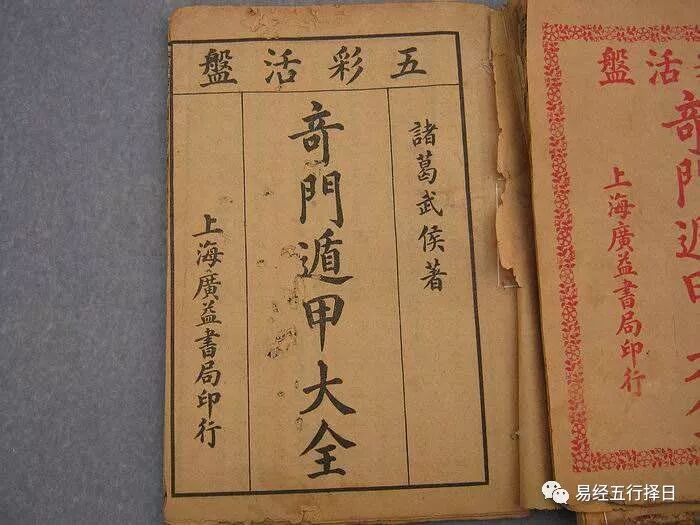 五彩活盤
諸葛武侯著
奇門遁甲大全
上海廣益書局印行
活盤
奇門遁甲大全
上海廣益書局印行
易经五行择日